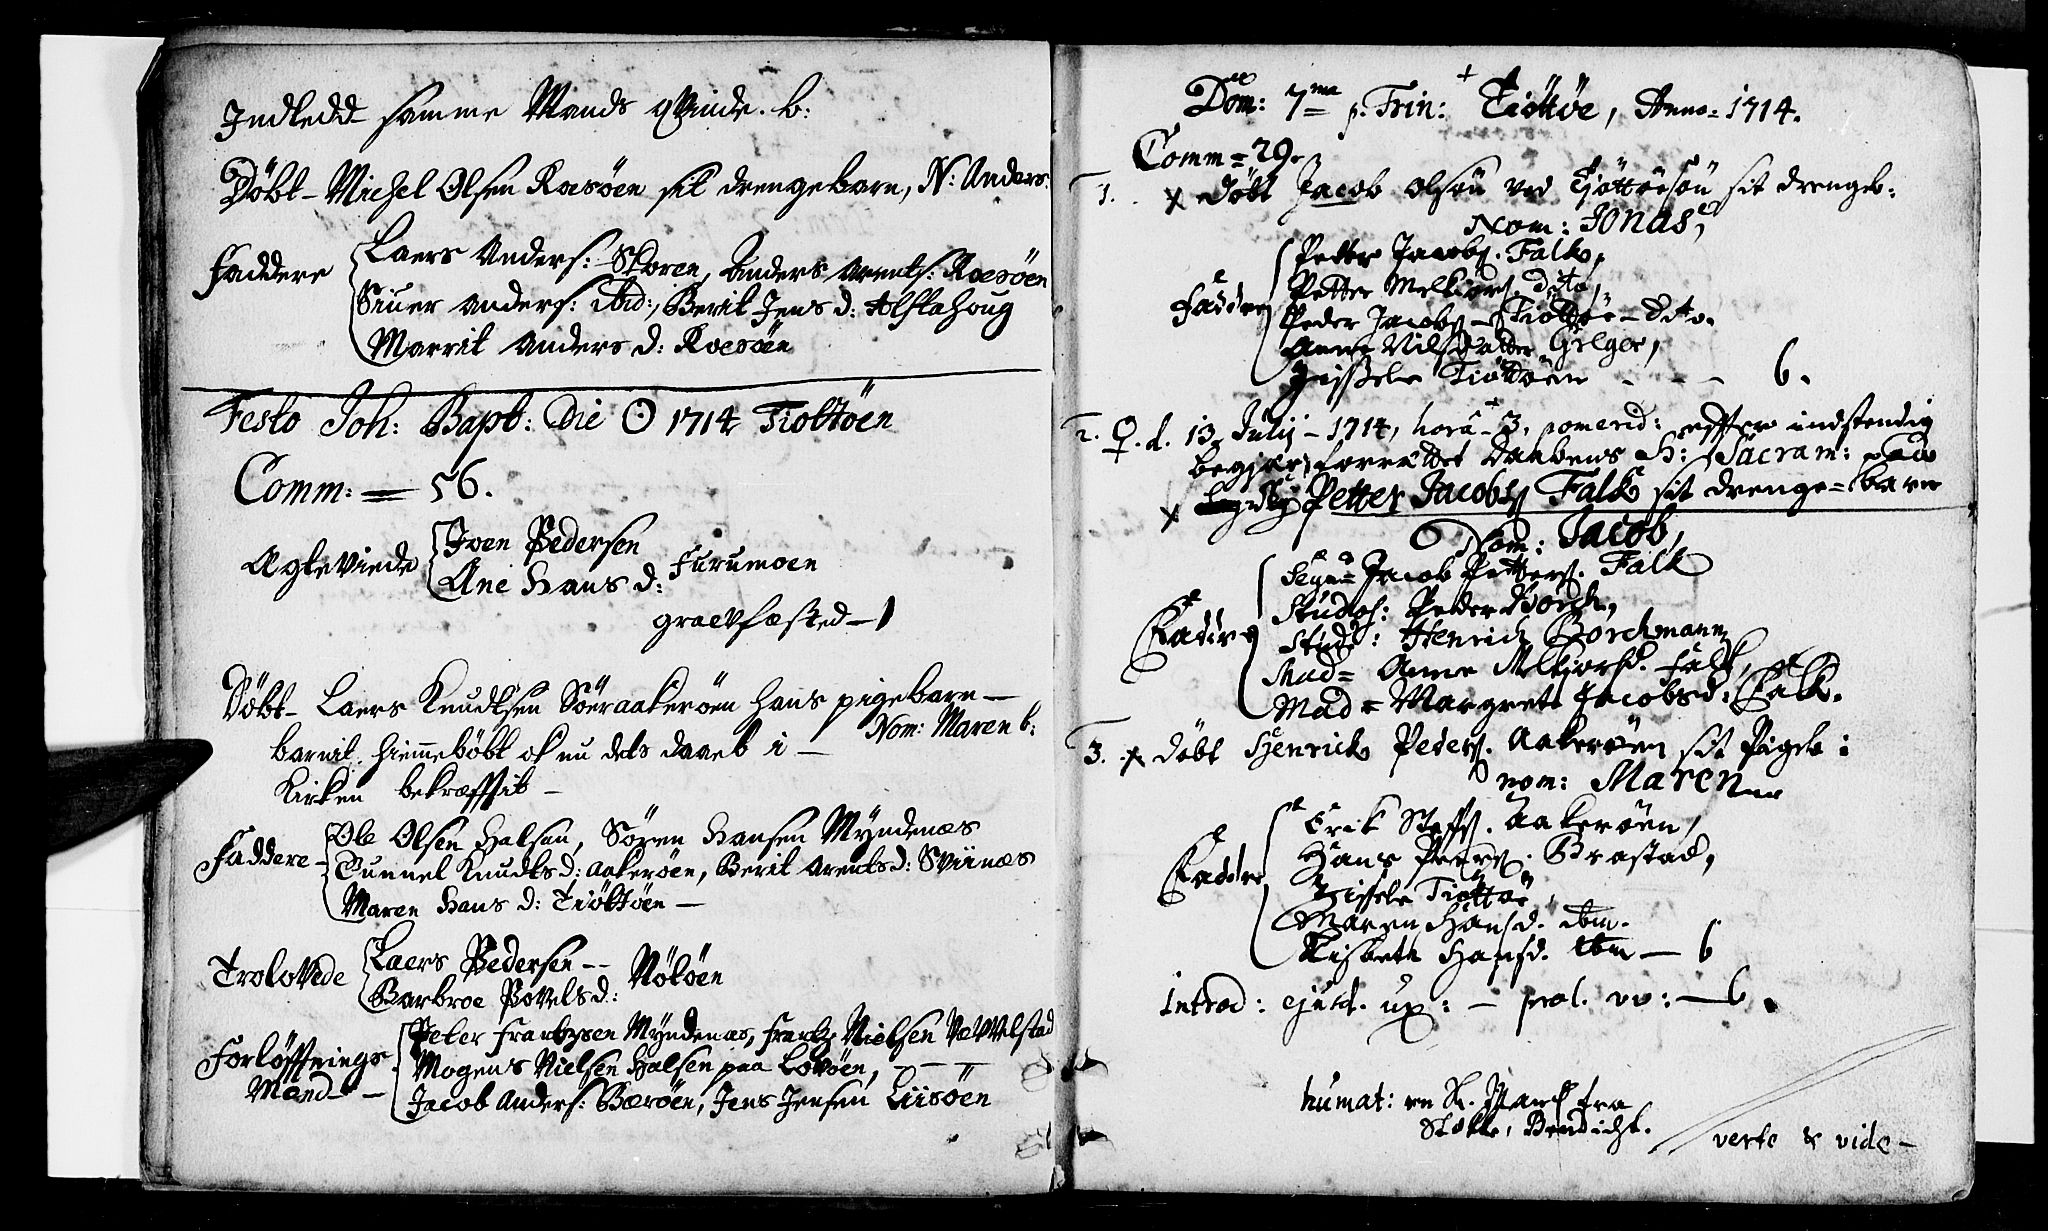 Indledd samme Mands qvinde. b:
Döbt - Michel Olsen Roesöen sit drengebarn, N: Anders:
Faddere
Laers Anders: Skoren, Anders Arents: Roesöen
Siuer Anders: ibid:, Berit Jens d: Alstahoug
Marrit Anders d: Roesöen
Festo Joh: Bapt: Die ☉ 1714 Tiöttöen
Comm: = 56.
Ægteviede
Joen Pedersen
Ane Hans d:
Furumoen
graevfæsted - 1
Döbt - Laers Knudtsen Söeraakeröen hans pigebarn -
Nom: Maren b:
barnit hiemedöbt ok nu dets daab i -
Kirken bekræfftit -
Faddere -
Ole Olsen Halsen, Sören Hansen Myndenæs
Gunnel Knudts d: Aakeröen, Berit Arents d: Sviinæs
Maren Hans d: Tiöttöen -
Trolovede
Laers Pedersen --
Barbroe Povels d:
Röröen
Forlöffnings
Mænd -
Peter Frantzsen Myndenæs, Frantz Nielsen Vævelstad
Mogens Nielsen Halsen paa Lovöen,
Jacob Anders: Bæröen, Jens Jensen Liisöen
Dom: 7ma p. Trin: Tiöttöe, Anno = 1714.
Comm = 29.
1. x döbt Jacob Olsön ved Tjöttöesön sit drengeb:
Nom: Jonas,
Faddre
Petter Jacobs. Falk,
Petter Melkiors. dito,
Peder Jacobs - Tiöttöe - dito.
Anne Nilsdatter
Zissele Tiöttöen - - - 6.
2. ♀. d. 13 Julij - 1714, hora - 3. pomerid: effter indstendig
begjær, forrettet Daabens H: Sacram: paa
x Petter Jacobs Falk sit drenge = barn
Nom: Jacob,
Faddre
Segn= Jacob Petters. Falk
Studios: Peder Borch,
Stud: Henrich Borchmann
Mad = Anne Melkiorsd. Falk,
Mad = Margrete Jacobsd: Falk.
3. x döbt Henrick Peders. Aakeröen sit Pigeb:
nom: Maren
Faddre
Erick Steffs. Aakeröen,
Hans Peders. Brastad,
Zissele Tiöttöe,
Maren Hansd. ibm.
Lisbeth Hansd. ibm - 6
Introd: ejusd. ux: - - 6.
humat: en
Bendicht.
verte & vide -